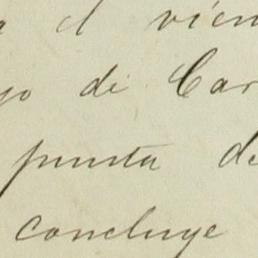 a el vien
go de Car
punta de
concluye